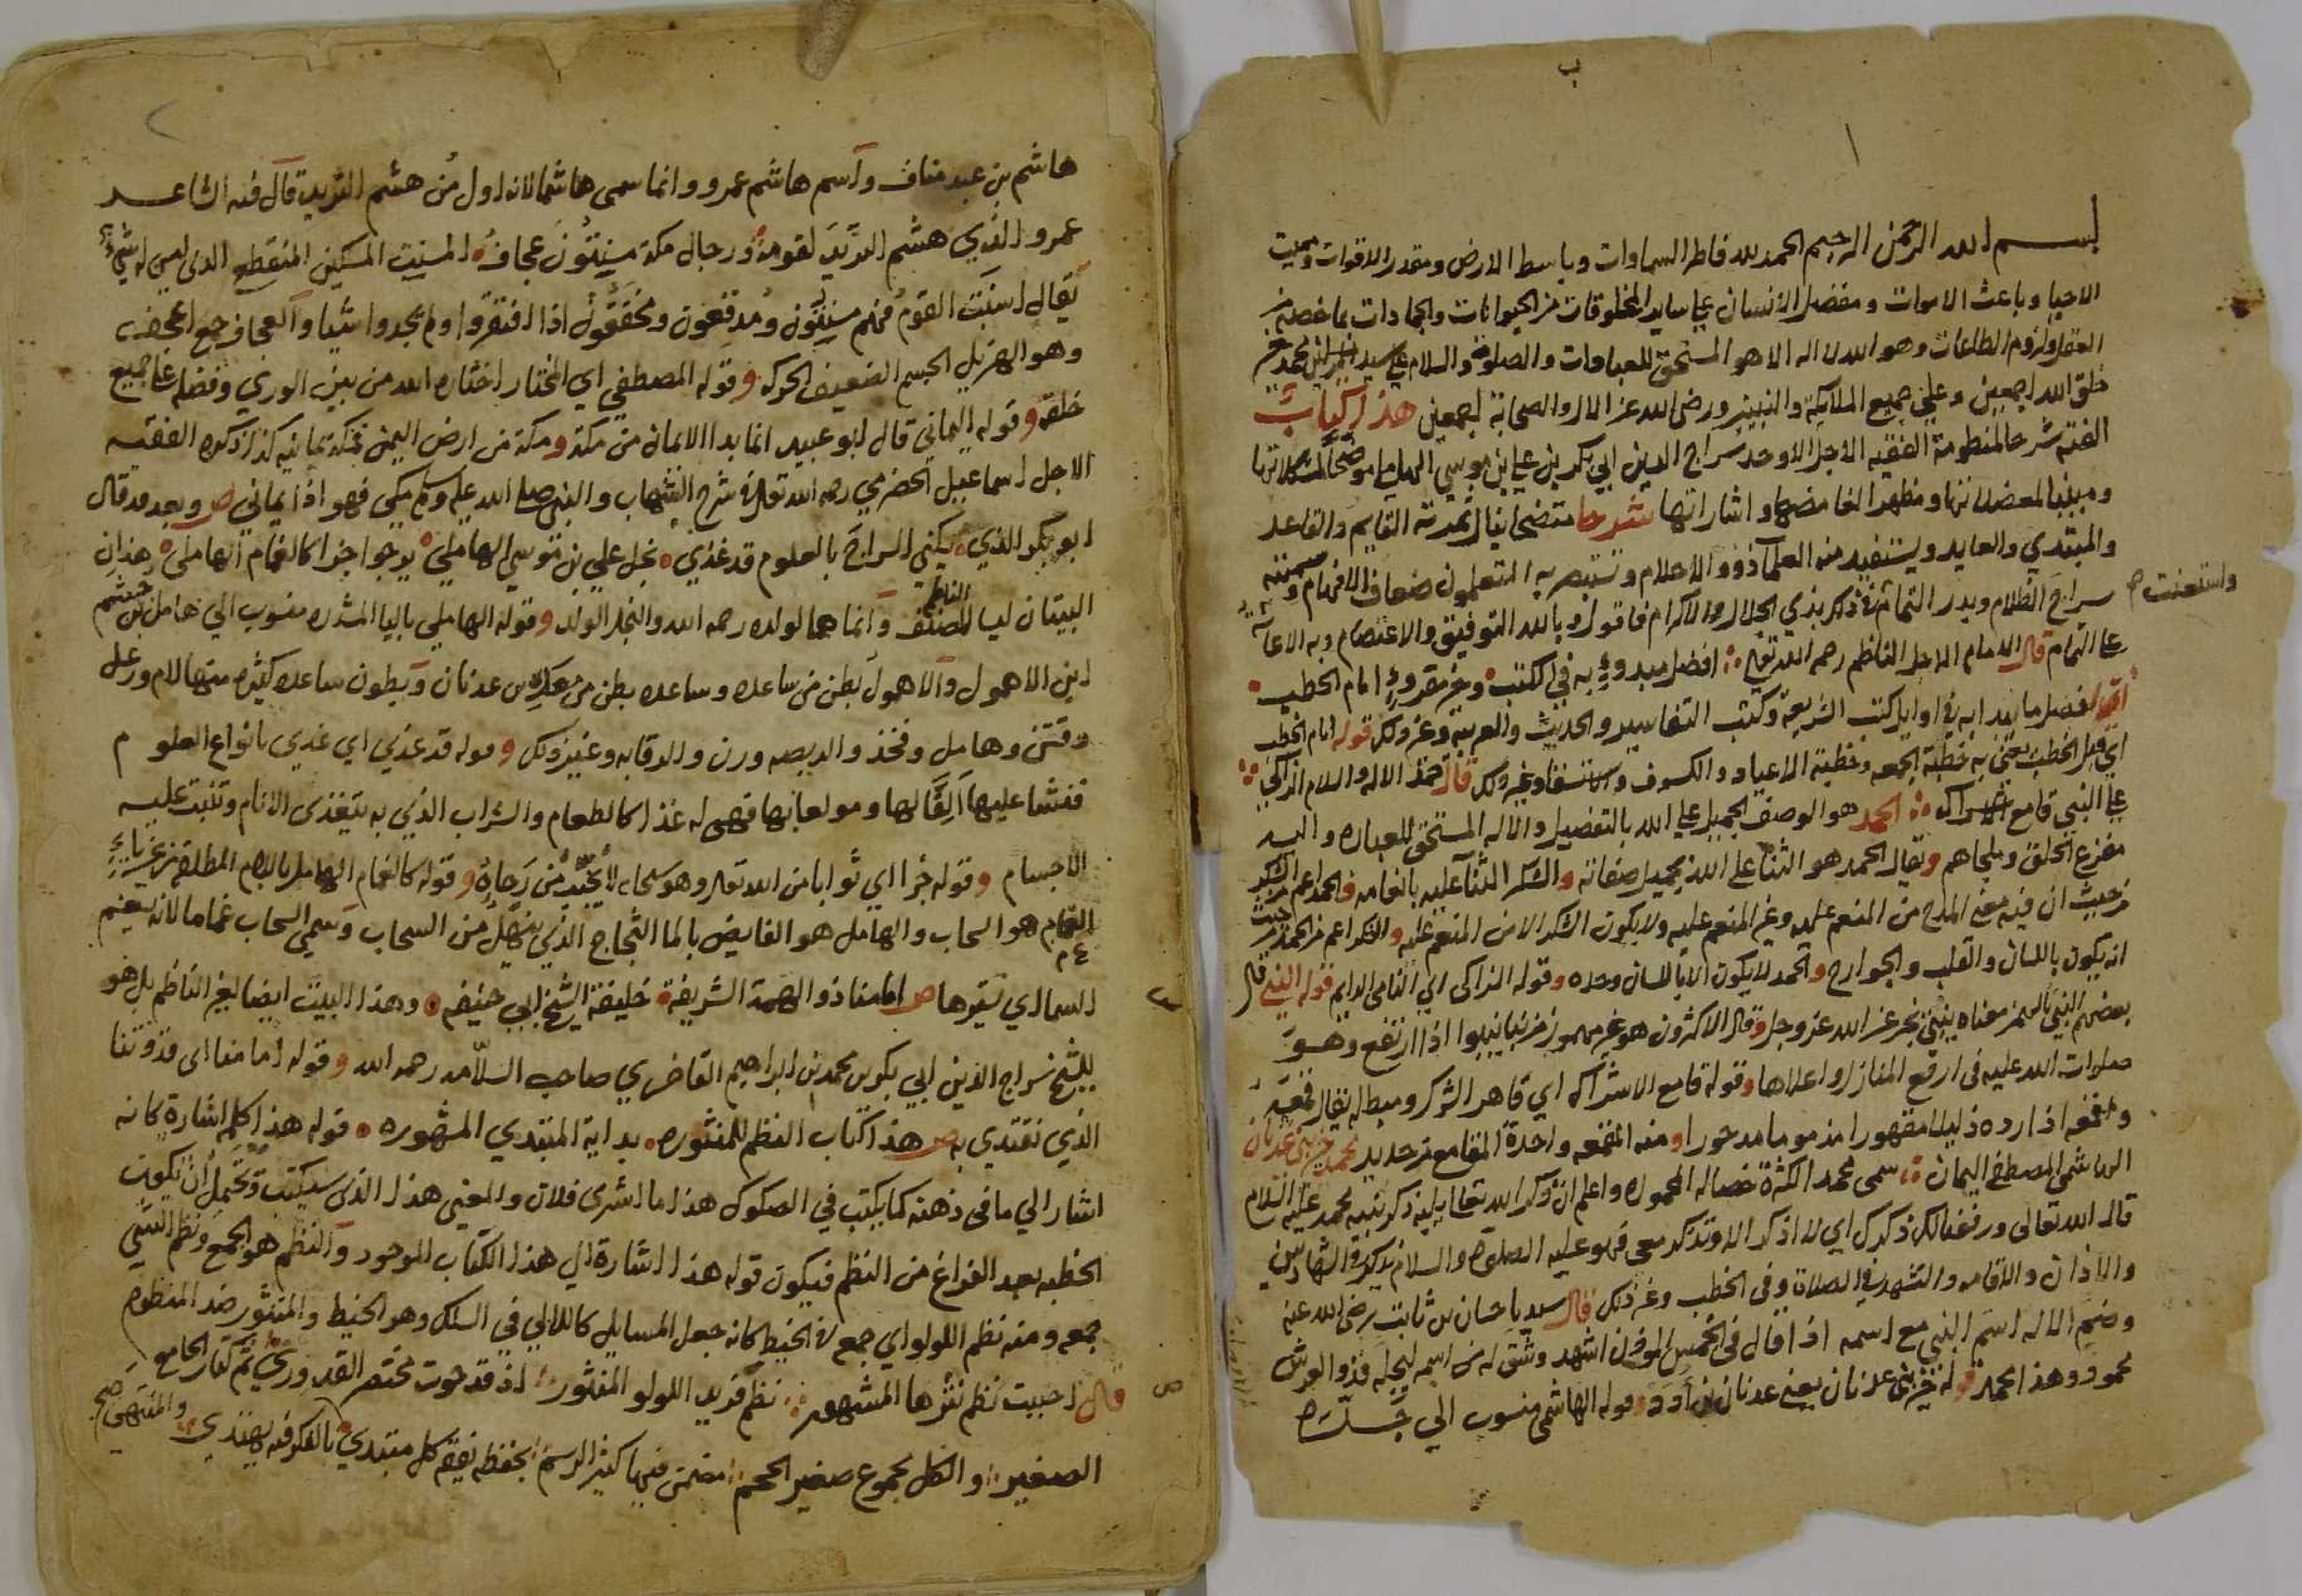 بسم الله الرحمن الرحيم الحمد لله فاطر السماوات وباسط الارض ومقدر الاقوات ومميت
الاحيا وباعث الاموات ومفضل الانسان على ساير المخلوقات من الحيوانات والجمادات بما خصه من
العقل ولزوم الطاعات وهو الله لا اله الا هو المستحق للعبادات والصلوة والسلام على سيد محمد خير
خلق الله اجمعين وعلى جميع الملايكة والنبيين ورضى الله عن الال والصحابة اجمعين هذا كتاب
الفته شرحا لمنظومة الفقيه الاجل الاوحد سراج الدين ابي بكر بن علي بن موسى الهاملي موضحا لمشكلاتها
ومبينا لمعضلاتها ومظهرا لغامضها واشاراتها شرحا متضحا ينال ثمرته القايم والقاعد
والمبتدي والعايد ويستفيد منه العلمآ ذوو الاحلام ويستبصر به المتعلمون ضعاف الافهام وسميته
سراج الظلام وبدر التمام في ذكر بذي الجلال والاكرام فاقول وبالله التوفيق والاعتصام وبه الاعانة
واستعنت
على التمام قال الامام الاجل الناظم رحمه الله تعالى افضل مبدوء به في الكتب وخير مقروء امام الخطب
افضل ما يبدا به في اوايل كتب الشريعة وكتب التفاسير والحديث والعربية وغير ذلك قوله امام الخطب
اي قبل الخطب يعني به خطبة الجمعه وخطبة الاعياد والكسوف والاستسقا وغير ذلك قال حمد الاله والسلام الزاكي
على النبي قامع الاشراك الحمد هو الوصف الجميل على الله بالتفضيل والاله المستحق للعباده واليه
مفزع الخلق وملجاهم ويقال الحمد هو الثنا على الله بجميل صفاته والشكر الثنآ عليه بانعامه فالحمد اعم من الشكر
من حيث ان فيه معنى المدح من المنعم عليه وغير المنعم عليه ولا يكون الشكر الا من المنعم عليه والشكر اعم من الحمد من حيث
انه يكون باللسان والقلب والجوارح والحمد لا يكون الا باللسان وحده وقوله الزاكى اي النامى الدايم قوله النبي قال
بعضهم النبي بالهمز معناه ينبئ يخبر عن الله عز وجل وقال الاكثرون هو غير مهموز من نبا ينبوا اذا ارتفع وهو
صلوات الله عليه في ارفع المنازل واعلاها وقوله قامع الاشراك اي قاهر الشرك ومبطله يقال قمعه
واقمعه اذا رده ذليلا مقهورا مذموما مدحورا ومنه المقمعه واحدة المقامع من حديد محمد خير بني عدنان
الهاشمي المصطفى اليماني سمى محمد الكثرة خصاله المحموده واعلم ان ذكر الله تعالى يليه ذكر نبيه محمد عليه السلام
قال الله تعالى ورفعنا لك ذكرك اي لا اذكر الا وتذكر معى فهو عليه الصلوة والسلام يذكر في الشهادتين
والاذان والاقامه والتشهد في الصلاة وفى الخطب وغير ذلك قال سيدنا حسان بن ثابت رضى الله عنه
وضم الاله اسم النبي مع اسمه اذا قال في الخمس الموذن اشهد وشق له من اسمه ليجله فذو العرش
محمود وهذا محمد قوله خير بني عدنان يعني عدنان بن ادد وقوله الهاشمي منسوب الي جده
هاشم بن عبد مناف وآسم هاشم عمرو وانما سمى هاشما لانه اول من هشم الثريد قال فيه الشاعر
عمرو الذي هشم الثريد لقومه ورجال مكة مسنتون عجاف المسنت المسكين المنقطع الذي ليس له شيء
يقال اسنت القوم فهم مسنتون ومدقعون ومخفقون اذا افتقروا ولم يجدوا شيا والعجاف جمع اعجف
وهو الهزيل الجسم الضعيف الحركه وقوله المصطفى اي المختار اختاره الله من بين الورى وفضله على جميع
خلقه وقوله اليماني قال ابو عبيد انما بدا الايمان من مكة ومكة من ارض اليمن فمكة يمانيه كذا ذكره الفقيه
الاجل اسماعيل الحضرمي رحمه الله تعالى في شرح الشهاب والنبي صلى الله عليه وسلم مكي فهو اذا يماني ص وبعد قد قال
ابو بكر الذي يكني السراج بالعلوم قد غذي نجل علي بن موسى الهاملي يرجوا جزا كالغمام الهامل هذان
البيتان ليسا للمصنف وانما هما لولده رحمه الله والنجل الولد وقوله الهاملي باليا المشدده منسوب الى هامل بن جشم
الناظم
ابن الاهمول والاهمول بطن من ساعده وساعده بطن من بن عدنان وبطون ساعده كثيره منها لام ورعل
وهامل وفخذ والدبيصه وغير ذلك وقوله قد غذي اي غذي بانواع العلوم
فنشا عليها الفا لها ومولعا بها فهي له غذا كالطعام والشراب الذي به يتغذى الانام وتنبت عليه
الاجسام وقوله جزا اي ثوابا من الله تعالى وهو سبحانه لا يخيب من رجاه وقوله كالغمام الهامل باللام المطلقه من غير ياء
الغمام هو السحاب والهامل هو الفايض بالما الثجاج الذي ينهل من السحاب وسمى السحاب غماما لانه يغم
السما اي يسترها ص امامنا ذو الهمة الشريفة خليفة الشيخ ابي حنيفه وهذا البيت ايضا لغير الناظم بل هو
للشيخ سراج الدين ابي بكر بن محمد بن ابراهيم صاحب السلامه رحمه الله وقوله امامنا اى قدوتنا
الذي نقتدي به ص هذا كتاب النظم للمنثوره بداية المبتدي المشهوره قوله هذا كلمة اشارة كانه
اشار الي ما في ذهنه كما يكتب في الصكوك هذا ما اشترى فلان والمعنى هذا الذى سيكتب ويحتمل ان يكون
الخطبه بعد الفراغ من النظم فيكون قوله هذا اشارة الي هذا الكتاب الموجود والنظم هو الجمع ونظم الشي
جمعه ومنه نظم اللولو اي جمع في الخيط كانه جعل المسايل كاللالي في السلك وهو الخيط والمنثور ضد المنظوم
قال احببت نظم نثرها المشهور نظم فريد اللولو المنثور اذ قد حوت مختصر القدوري ثم كتاب الجامع
الصغير والكل مجموع صغير الحجم مضمن فيها كثير الرسم بحفظه يفقه كل مبتدي بالفكر فيه يهتدي والمنتهى صح